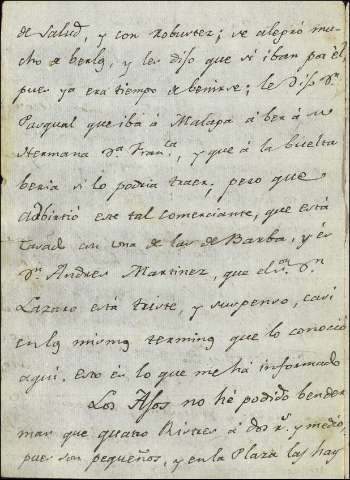 de salud, y con robustez; se alegró mu-
cho a berlos, y les dijo que si iban por él,
pues ya era tiempo de benirse; le dijo Dn.
Pasqual que iba á Malaga á ber á su
Hermana Da. Franca., y que á la buelta
beria si lo podria traer; pero que
adbirtió este tal comerciante, que está
casado con una de las de Barba, y es
Dn. Andres Martinez, que el Sor. Dn.
Lazaro está triste, y suspenso, casi
en los mismos terminos que lo conoció
aqui. esto es lo que me há informado
Los Ajos no hé podido bender
mas que quatro Ristres á dos rs. y medio,
pues son pequeños, y en la Plaza los hay